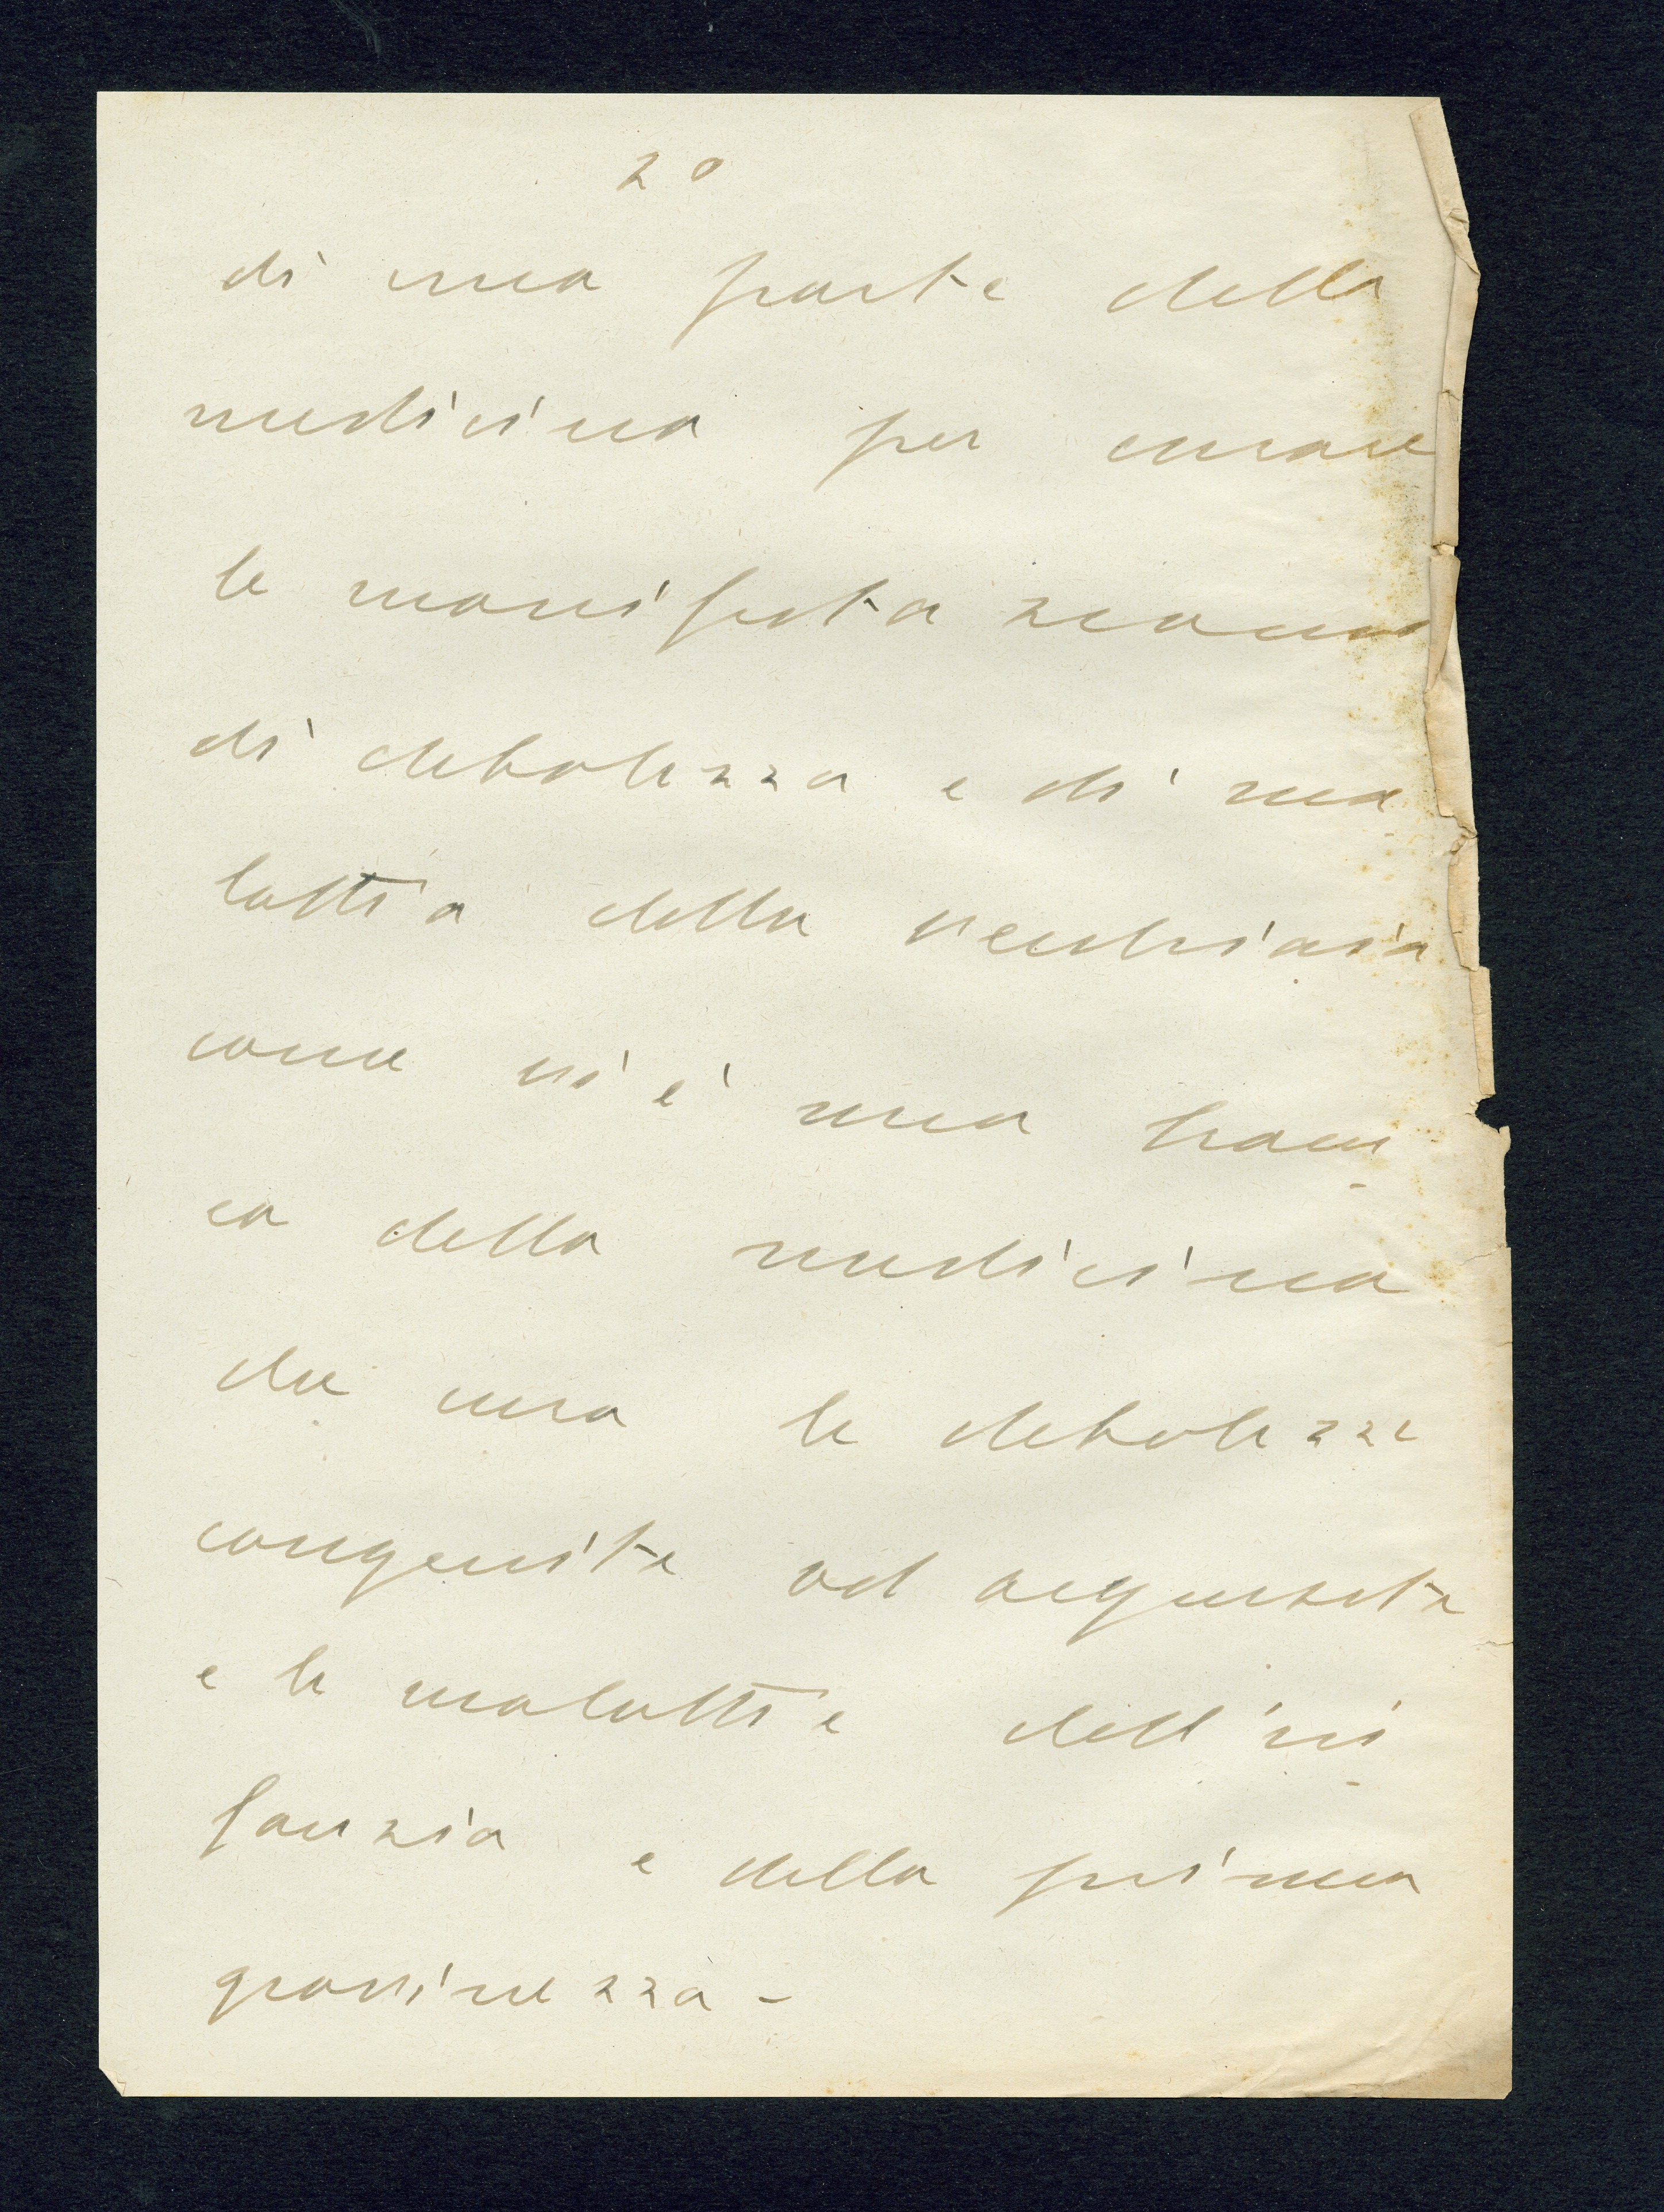 20
di una parte della
medicina per curare
le manifestazioni
di debolezza e di ma
lattia della vecchiaia
come vi è una bran
ca della medicina
che cura le debolezze
congenite od acquisite
e le malattie dell'in
fanzia e della prima
giovinezza -